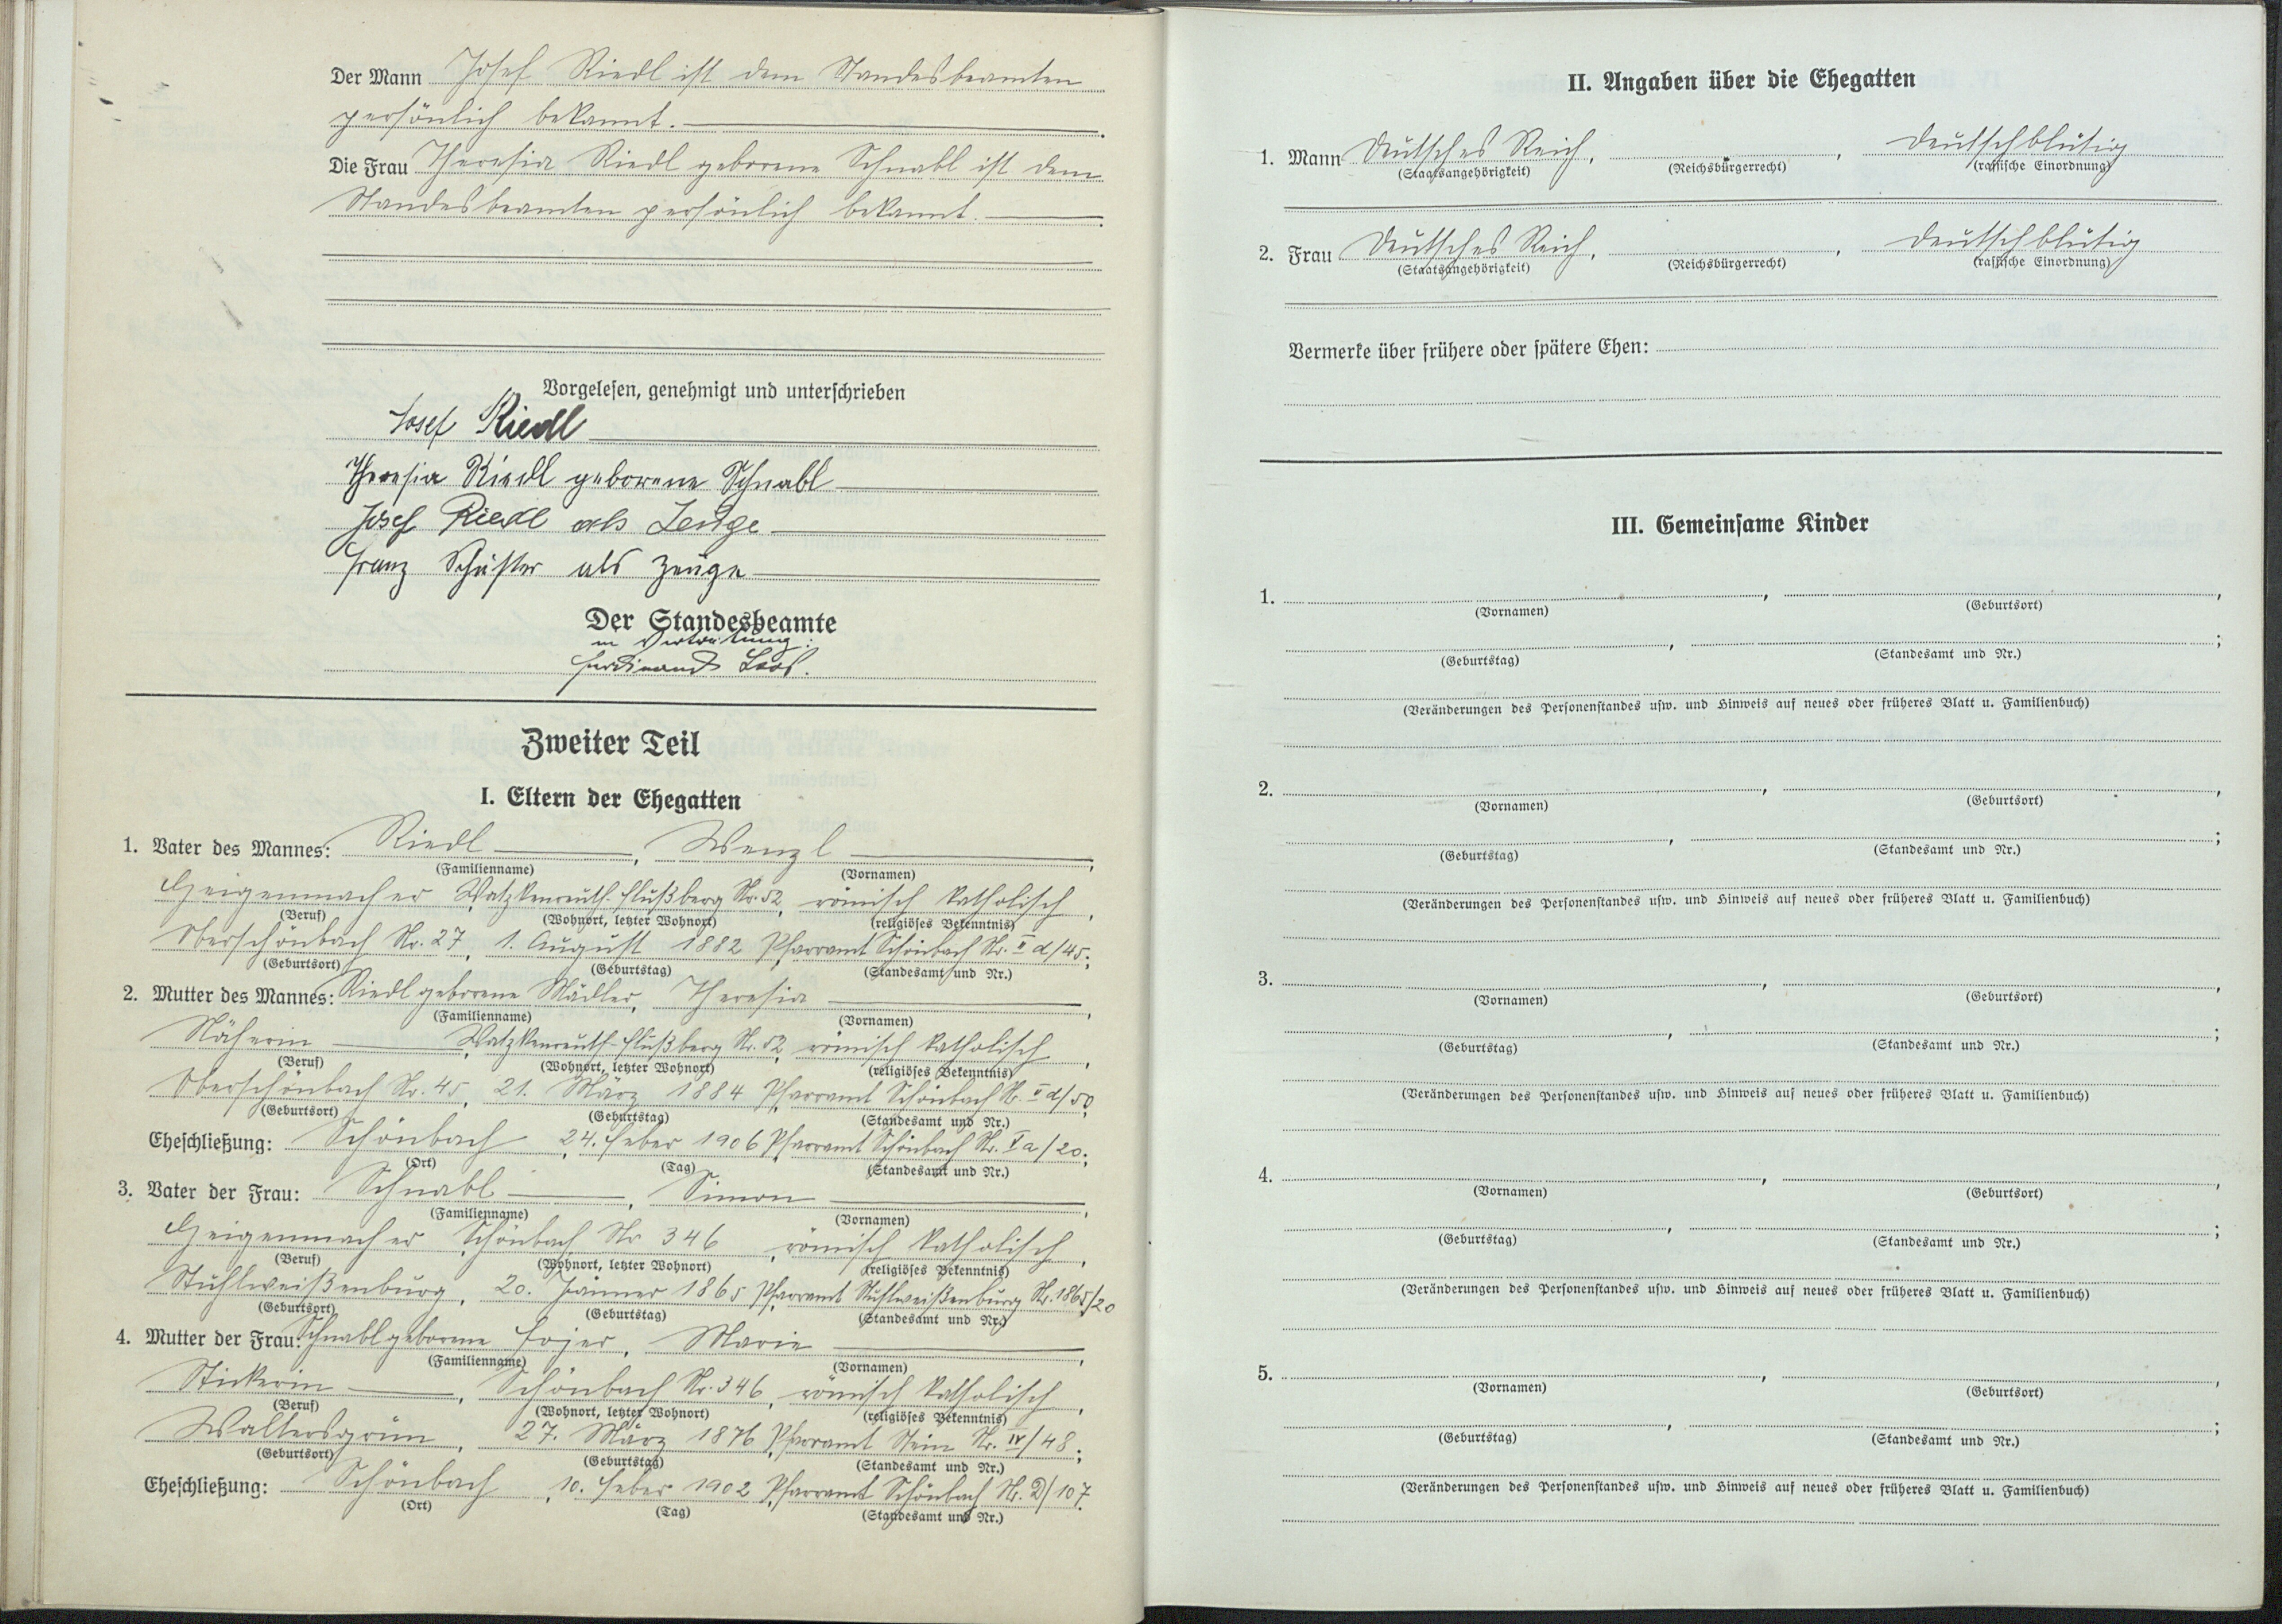 Der Mann Josef Riedl ist dem Standesbeamten
persönlich bekannt.
Die Frau Theresia Riedl geborene Schnabl ist dem
Standesbeamten persönlich bekannt.
Vorgelesen, genehmigt und unterschrieben
Josef Riedl
Theresia Riedl geborene Schnabl
Josef Riedl als Zeuge
Franz Schuster als Zeuge
Der Standesbeamte
in Vertretung:
Ferdinand Loos.
Zweiter Teil
I. Eltern der Ehegatten
1. Vater des Mannes: Riedl, Wenzl,
(Familienname) (Vornamen)
Geigenmacher, Watzkenreuth-Flußberg Nr. 52, römisch katholisch,
(Beruf) (Wohnort, letzter Wohnort) (religiöses Bekenntnis)
Oberschönbach Nr. 27, 1. August 1882 Pfarramt Schönbach Nr. II d/45;
(Geburtsort) (Geburtstag) (Standesamt und Nr.)
2. Mutter des Mannes: Riedl geborene Mädler, Theresia,
(Familienname) (Vornamen)
Näherin, Watzkenreuth-Flußberg Nr. 52, römisch katholisch,
(Beruf) (Wohnort, letzter Wohnort) (religiöses Bekenntnis)
Oberschönbach Nr. 45, 21. März 1884 Pfarramt Schönbach Nr. II d/50;
(Geburtsort) (Geburtstag) (Standesamt und Nr.)
Eheschließung: Schönbach, 24. Feber 1906 Pfarramt Schönbach Nr. Va/20;
(Ort) (Tag) (Standesamt und Nr.)
3. Vater der Frau: Schnabl, Simon,
(Familienname) (Vornamen)
Geigenmacher, Schönbach Nr 346, römisch katholisch,
(Beruf) (Wohnort, letzter Wohnort) (religiöses Bekenntnis)
Stuhlweißenburg, 20. Jänner 1865 Pfarramt Stuhlweißenburg Nr. 1865/20
(Geburtsort) (Geburtstag) (Standesamt und Nr.)
4. Mutter der Frau: Schnabl geborene Fojer, Marie,
(Familienname) (Vornamen)
Stickerin, Schönbach Nr. 346, römisch katholisch,
(Beruf) (Wohnort, letzter Wohnort) (religiöses Bekenntnis)
Waltersgrün, 27. März 1876, Pfarramt Stein Nr. IV/48;
(Geburtsort) (Geburtstag) (Standesamt und Nr.)
Eheschließung: Schönbach, 10. Feber 1902 Pfarramt Schönbach Nr. D/107.
(Ort) (Tag) (Standesamt und Nr.)
II. Angaben über die Ehegatten
1. Mann Deutsches Reich, , deutschblütig
(Staatsangehörigkeit) (Reichsbürgerrecht) (rassische Einordnung)
2. Frau Deutsches Reich, , deutschblütig
(Staatsangehörigkeit) (Reichsbürgerrecht) (rassische Einordnung)
Vermerke über frühere oder spätere Ehen:
III. Gemeinsame Kinder
1. , ,
(Vornamen) (Geburtsort)
, ;
(Geburtstag) (Standesamt und Nr.)
(Veränderungen des Personenstandes usw. und Hinweis auf neues oder früheres Blatt u. Familienbuch)
2. , ,
(Vornamen) (Geburtsort)
, ;
(Geburtstag) (Standesamt und Nr.)
(Veränderungen des Personenstandes usw. und Hinweis auf neues oder früheres Blatt u. Familienbuch)
3. , ,
(Vornamen) (Geburtsort)
, ;
(Geburtstag) (Standesamt und Nr.)
(Veränderungen des Personenstandes usw. und Hinweis auf neues oder früheres Blatt u. Familienbuch)
4. , ,
(Vornamen) (Geburtsort)
, ;
(Geburtstag) (Standesamt und Nr.)
(Veränderungen des Personenstandes usw. und Hinweis auf neues oder früheres Blatt u. Familienbuch)
5. , ,
(Vornamen) (Geburtsort)
, ;
(Geburtstag) (Standesamt und Nr.)
(Veränderungen des Personenstandes usw. und Hinweis auf neues oder früheres Blatt u. Familienbuch)